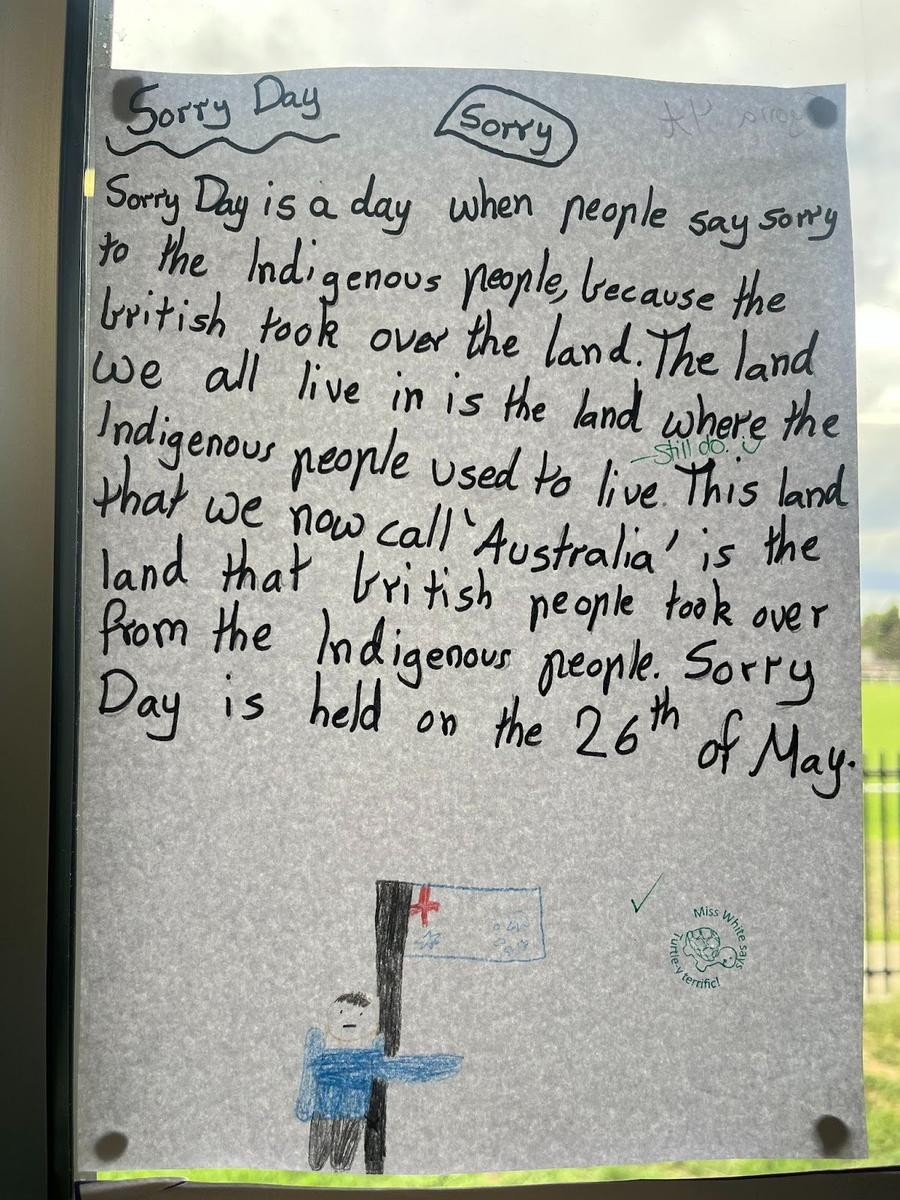 Sorry Day
Sorry
Sorry Day is a day when people say sorry
to the Indigenous people, because the
british took over the land. The land
we all live in is the land where the
Indigenous people used to live. This land
– Still do. :)
that we now call 'Australia' is the
land that british people took over
from the Indigenous people. Sorry
Day is held on the 26th of May.
Miss White says
Turtle-y terrific!